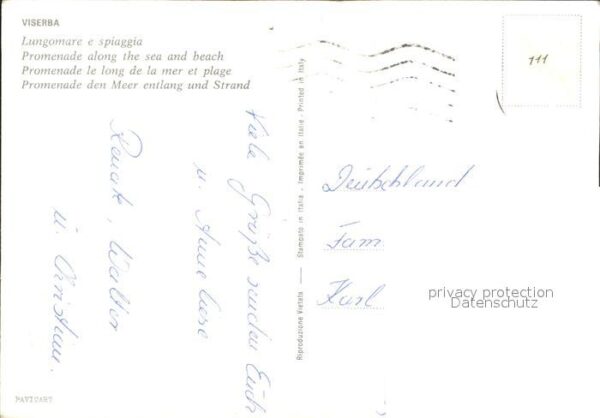 VISERBA
Lungomare e spiaggia
Promenade along the sea and beach
Promenade le long de la mer et plage
Promenade den Meer entlang und Strand
111
Viele Grüße senden Euch
u. Anneliese
Renate, Walter
u. Christian.
Riproduzione Vietata — Stampato in Italia - Imprimée en Italie - Printed in Italy
Deutschland
Fam
Karl
privacy protection
Datenschutz